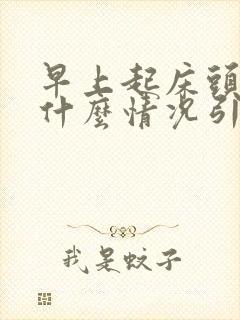 早上起床頭
什麼情況引
我是蚊子